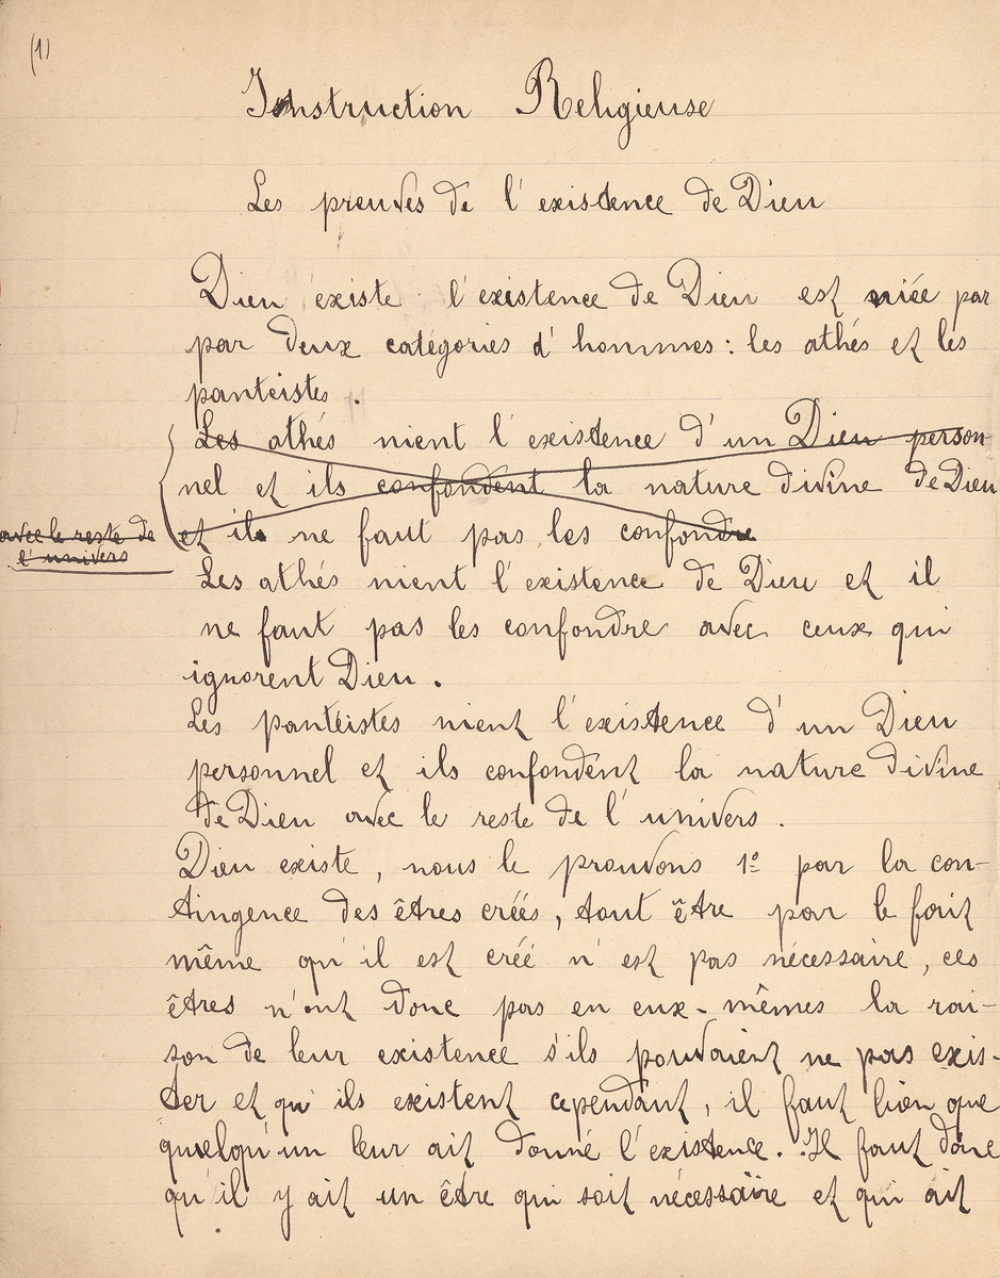 (1)
Instruction Religieuse
Les preuves de l'existence de Dieu
Dieu existe l'existence de Dieu est niée par
par deux catégories d'hommes : les athés et les
pantéistes .
Les athés nient l'existence d'un Dieu person-
nel et ils confondent la nature divine de Dieu
avec le reste de
l'univers
et il ne faut pas les confondre
Les athés nient l'existence de Dieu et il
ne faut pas les confondre avec ceux qui
ignorent Dieu .
Les pantéistes nient l'existence d'un Dieu
personnel et ils confondent la nature divine
de Dieu avec le reste de l'univers .
Dieu existe , nous le prouvons 1º par la con-
tingence des êtres créés , tout être par le fait
même qu'il est créé n'est pas nécessaire , ces
êtres n'ont donc pas en eux-mêmes la rai-
son de leur existence s'ils pouvaient ne pas exis-
ter et qu'ils existent cependant , il faut bien que
quelqu'un leur ait donné l'existence . Il faut donc
qu'il y ait un être qui soit nécessaire et qui ait